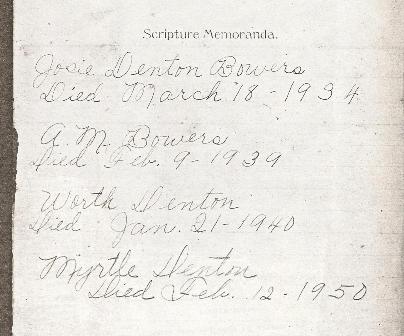 Scripture Memoranda.
Josie Denton Bowers
Died March 18-1934
A. M. Bowers
Died Feb. 9-1939
Worth Denton
Died Jan. 21-1940
Myrtle Denton
Died Feb. 12-1950